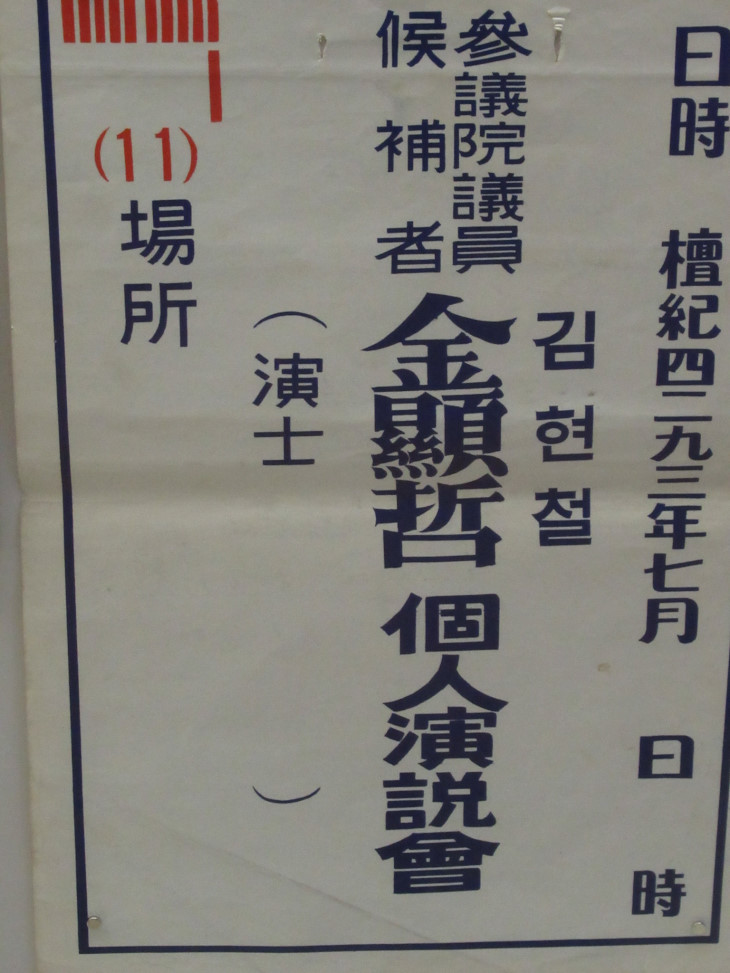 日時 檀紀四二九三年七月 日 時
김현철
參議院議員
候補者
金顯哲 個人演説會
(演士 )
(11)
場所